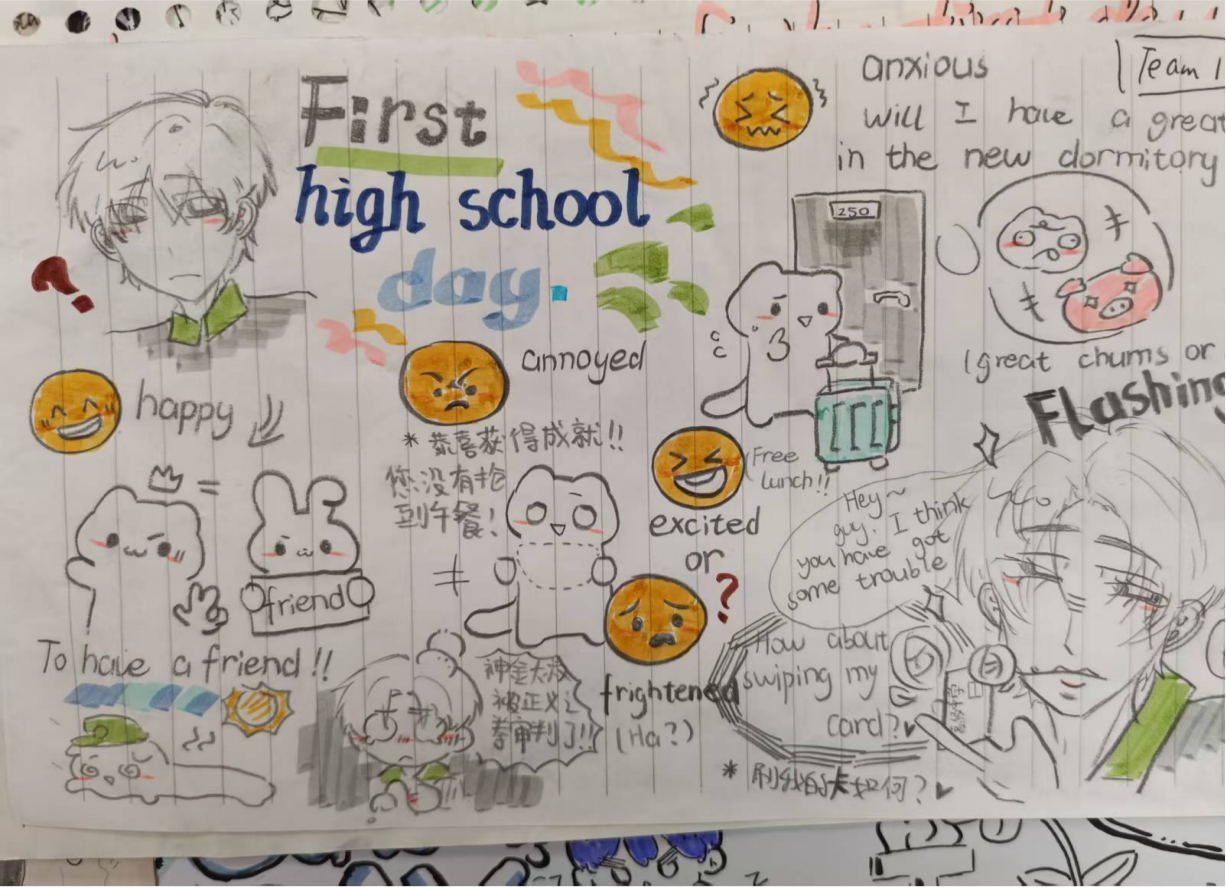 First
high school
day.
anxious
Team 1
will I have a great
in the new dormitory
250
(great chums or
Flashing
annoyed
*恭喜获得成就!!
您没有抢
到午餐!
happy
=
friend
To have a friend!!
Free
Lunch!!
excited
or
?
frightened
(Ha?)
Hey~
guy. I think
you have got
some trouble
How about
swiping my
card?
*刷我的卡如何?
被正义之
拳审判了!!
?